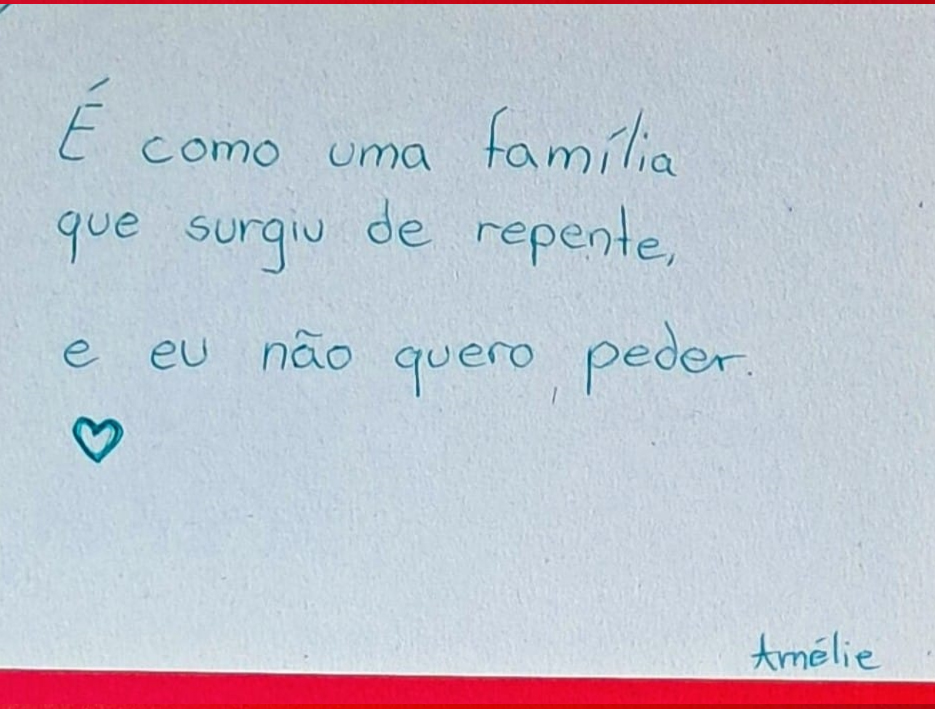 É como uma família
que surgiu de repente,
e eu não quero peder.
♡
Amélie